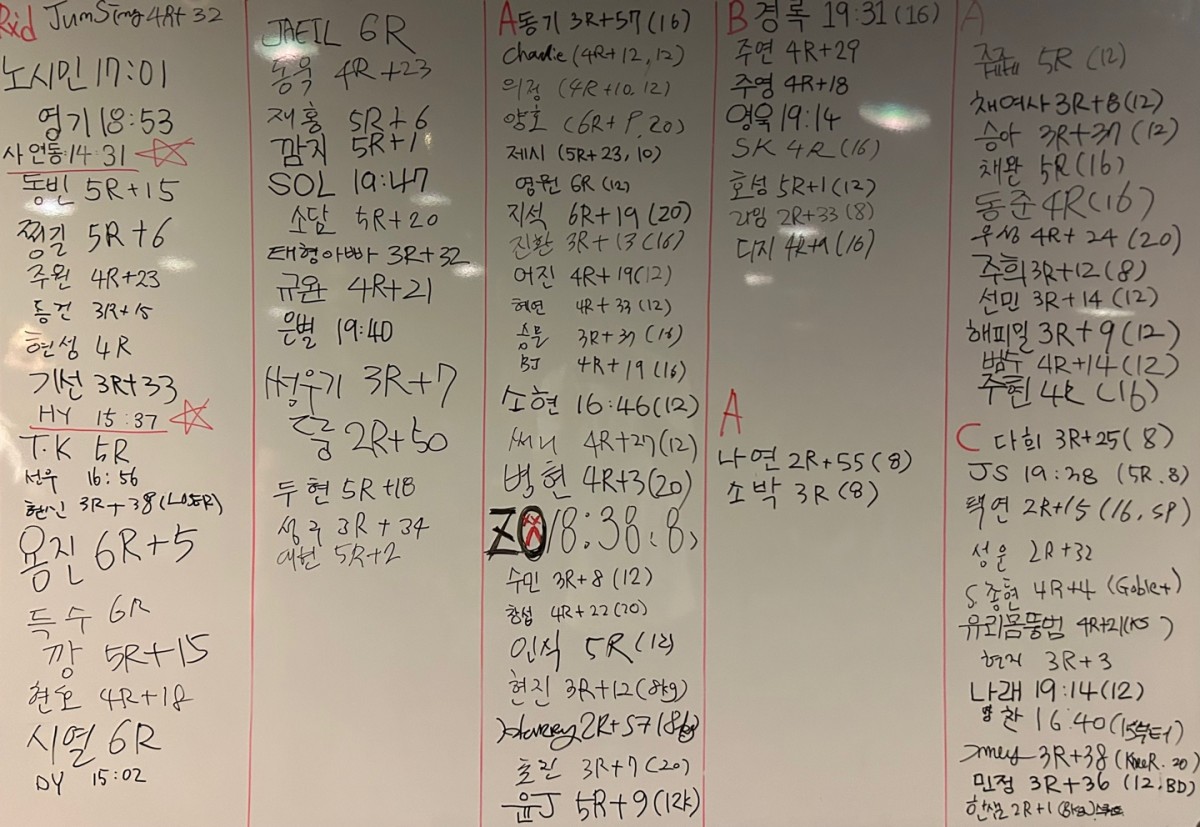 Rxd JumSing 4R+32
노시민 17:01
영기 18:53
사언동 14:31
동빈 5R+15
찡길 5R+6
주원 4R+23
동건 3R+15
현성 4R
기선 3R+33
HY 15:37
T.K 5R
선우 16:56
3R+38 (LOSER)
용진 6R+5
득수 6R
깡 5R+15
현호 4R+18
시열 6R
DY 15:02
JAEIL 6R
동욱 4R+23
재홍 5R+6
깜지 5R+1
SOL 19:47
소담 5R+20
태형아빠 3R+32
규완 4R+21
은별 19:40
썽우기 3R+7
줄 2R+50
두현 5R+18
성구 3R+34
대현 5R+2
A 동기 3R+57 (16)
Charlie (4R+12, 12)
의정 (4R+10. 12)
양호 (6R+9. 20)
제시 (5R+23, 10)
영원 6R (12)
지석 6R+19 (20)
진환 3R+13 (16)
어진 4R+19 (12)
혜연 4R+33 (12)
승문 3R+37 (16)
BJ 4R+19 (16)
소현 16:46 (12)
써니 4R+27 (12)
병현 4R+3 (20)
ZO 18:38 (8)
수민 3R+8 (12)
창섭 4R+22 (20)
인식 5R (12)
현진 3R+12 (8kg)
Harry 2R+57 (8kg)
효진 3R+7 (20)
윤J 5R+9 (12k)
B 경록 19:31 (16)
주연 4R+29
주영 4R+18
영욱 19:14
SK 4R (16)
호성 5R+1 (12)
라임 2R+33 (8)
디지 4R+9 (16)
A
나연 2R+55 (8)
소박 3R (8)
A
쥬쥬 5R (12)
채여사 3R+8 (12)
승아 3R+37 (12)
채완 5R (16)
동준 4R (16)
우성 4R+24 (20)
주희 3R+12 (8)
선민 3R+14 (12)
해피일 3R+9 (12)
범수 4R+14 (12)
주현 4R (16)
C 다희 3R+25 (8)
JS 19:38 (5R.8)
택연 2R+15 (16, SP)
성운 2R+32
S.종현 4R+4 (Goblet)
유리몸뚱범 4R+21 (KS)
현지 3R+3
나래 19:14 (12)
명찬 16:40 (15부터)
Jmey 3R+38 (KneeR. 20)
민정 3R+36 (12, BD)
한샘 2R+1